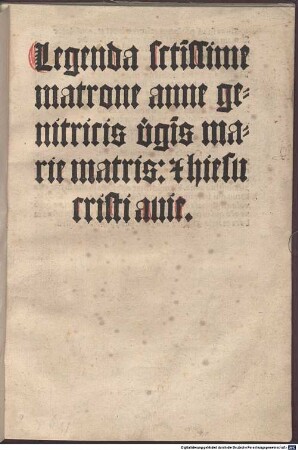 Legenda sctissime
matrone anne ge⸗
nitricis v̄gīs ma⸗
rie matris: ⁊ hiesu
cristi auie.